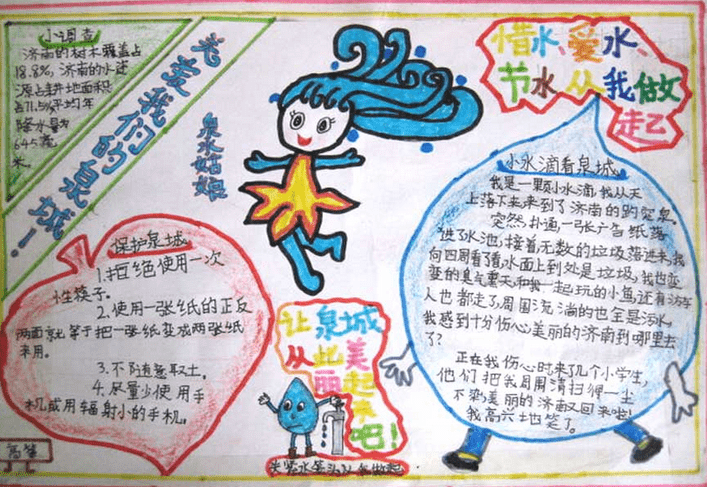 小调查
济南的树木覆盖占
18.8%,济南的水资
源占耕地面积
占71.5%平均年
降水量为
645毫
米。
关爱我们的泉城!
泉水姑娘
惜水、爱水、
节水从我做
起
小水滴看泉城
我是一颗小水滴,我从天
上落下来来到了济南的趵突泉。
突然,扑通,一张广告纸落
进了水池,接着无数的垃圾落进来,我
向四周看了看水面上到处是垃圾,我也变
变的臭气熏天,和我一起玩的小鱼还有访客
人也都走了,周围流淌的也全是污水,
我感到十分伤心美丽的济南到哪里去
了?
正在我伤心时来了几个小学生,
他们把我周围清扫得一尘
不染,美丽的济南又回来啦!
我高兴地笑了。
保护泉城
1.拒绝使用一次
性筷子。
2.使用一张纸的正反
两面就等于把一张纸变成两张纸
来用。
3.不随意取土。
4.尽量少使用手
机或用辐射小的手机。
让泉城
从此美
丽起
来吧!
关紧水笼头从我做起